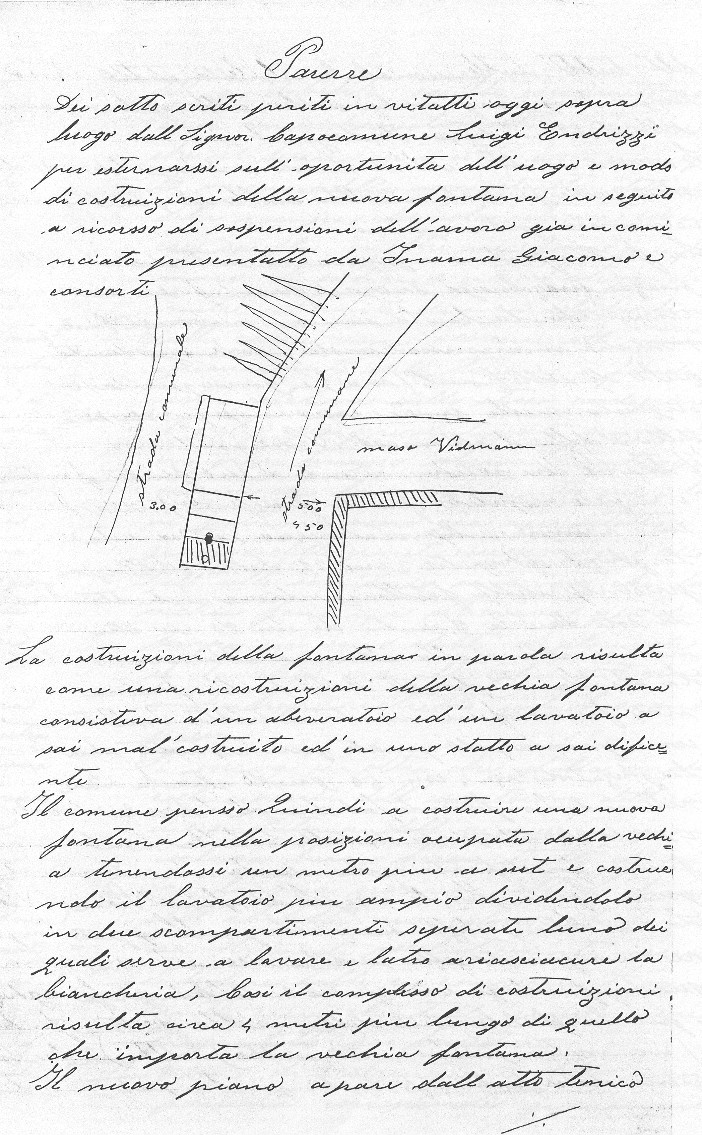 Parerre
Dei sotto scritti periti in vitatti oggi sopra
luogo dall Signor. Capocomune Luigi Endrizzi
per esternarssi sull'oportunita dell'uogo e modo
di costruizioni della nuova fontana in seguito
a ricorsso di sospensioni dell'avoro gia incomi=
nciato presentatto da Inama Giacomo e
consorti
strada comunale
strada comunane
maso Vidmann
3.00
5.00
4 50
La costruizioni della fontana in parola risulta
come una ricostruizioni della vechia fontana
consisteva d'un abeveratoio ed'un lavatoio a
sai mal'costruito ed'in uno statto a sai difice=
nte
Il comune pensso Quindi a costruire una nuova
fontana nella posizioni ocupata dalla vechi=
a tenendossi un metro piu a sut e costrue
ndo il lavatoio piu ampio dividendolo
in due scompartimenti seperati luno dei
quali serve a lavare e latro ariasciacure la
biancheria, Cosi il complesso di costruizioni
risulta circa 4 metri piu lungo di quello
che importa la vechia fontana.
Il nuovo piano apare dall atto tenico
./.